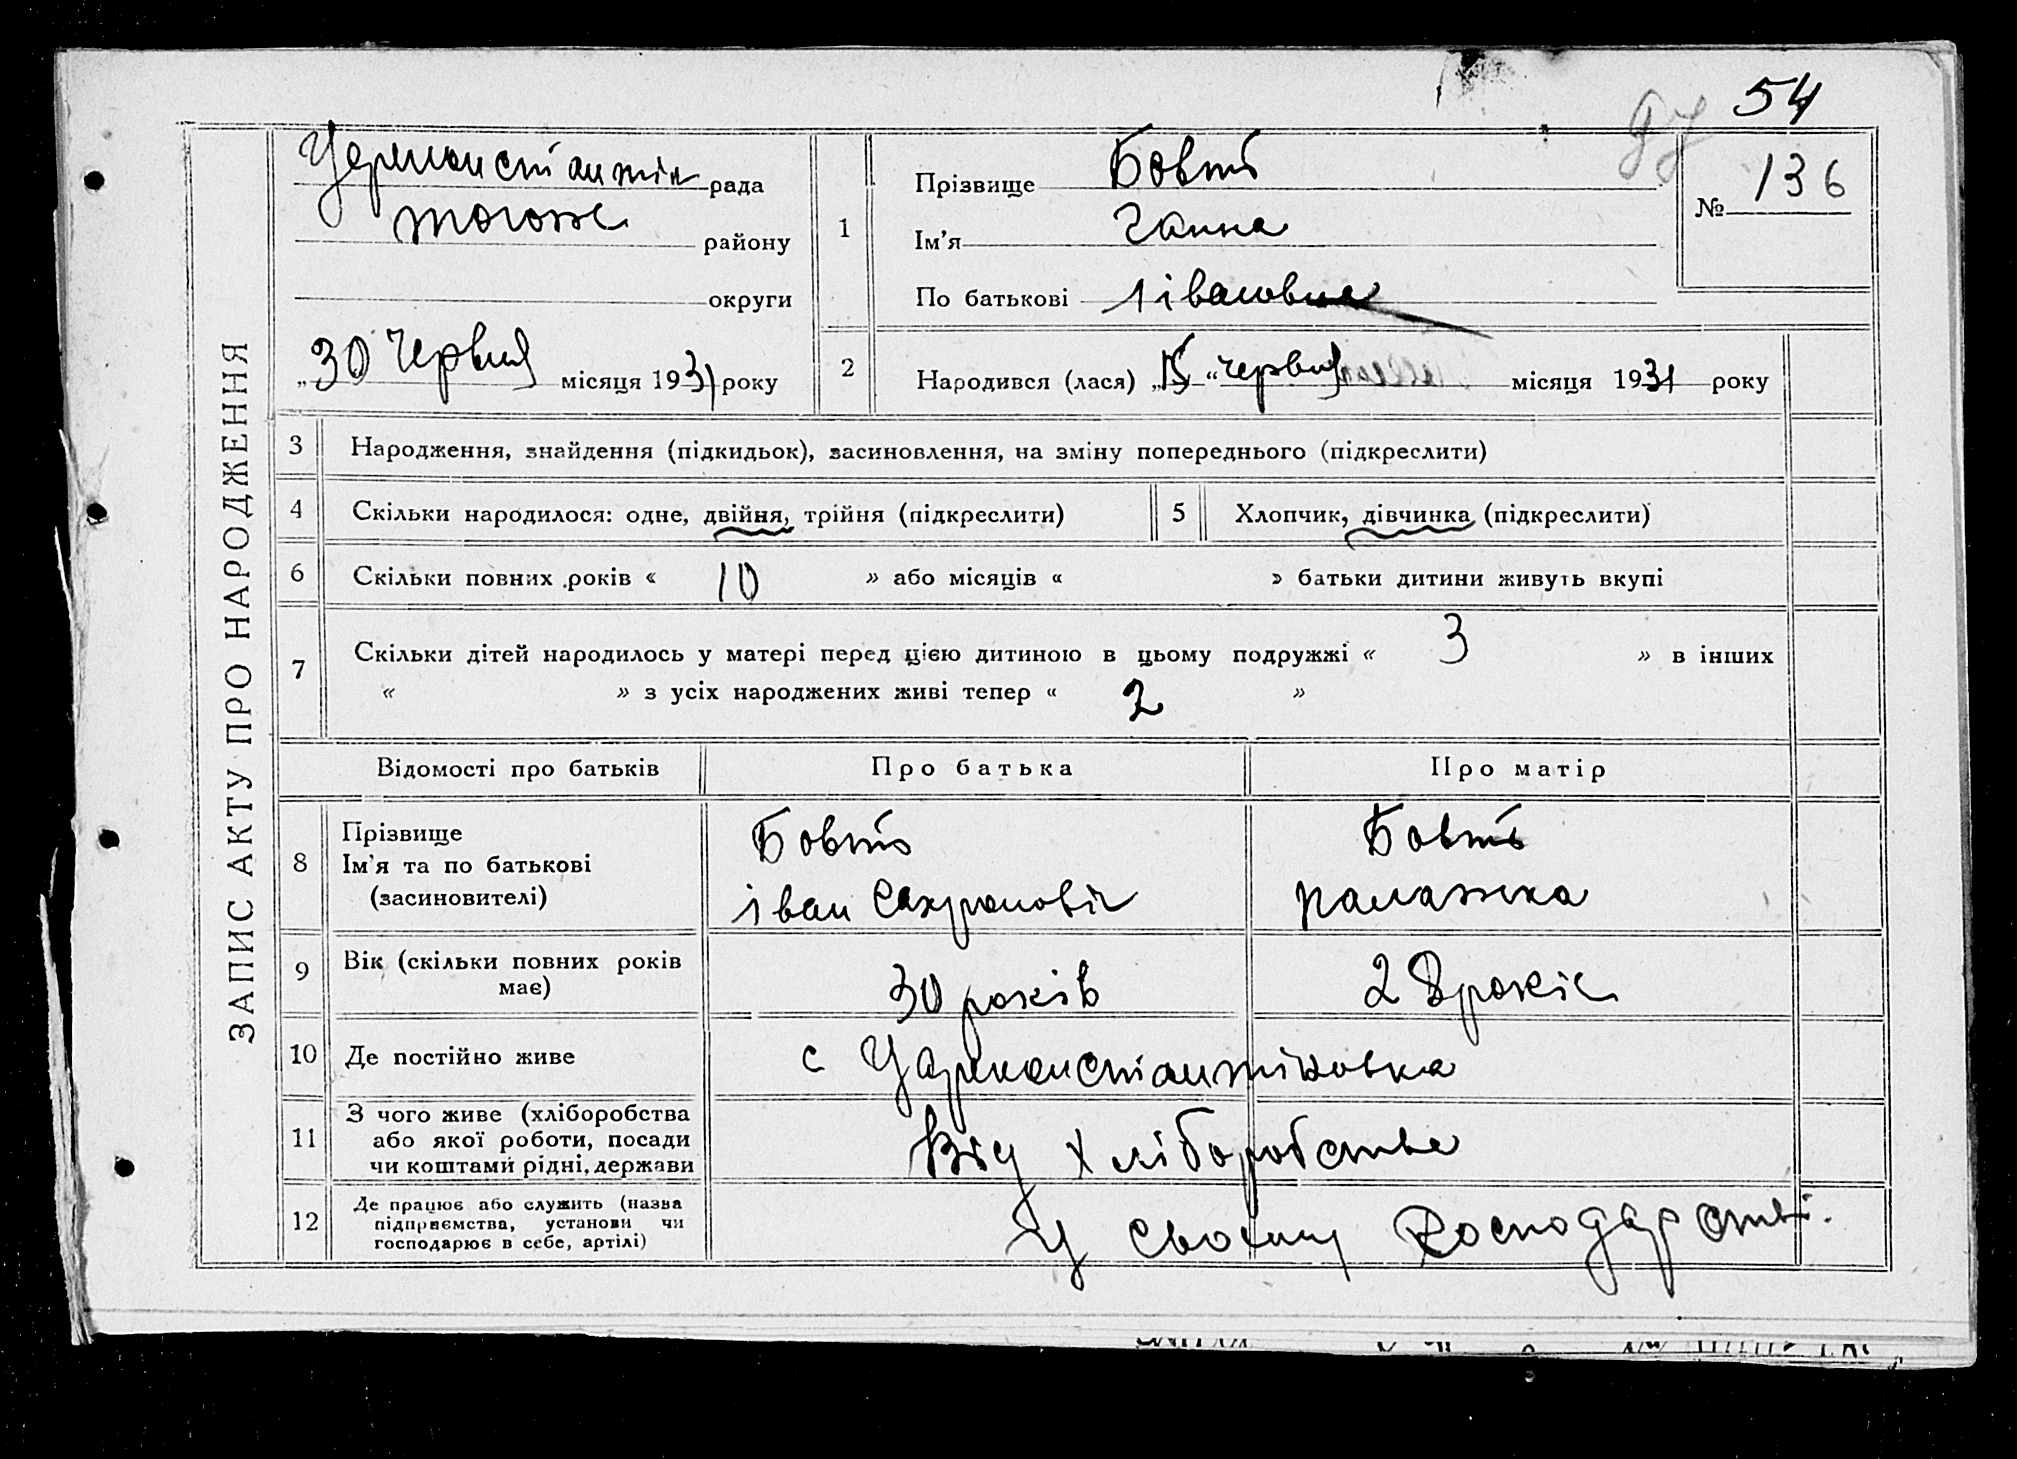 54
ЗАПИС АКТУ ПРО НАРОДЖЕННЯ
Царикостянтін рада
тогоже району
округи
„30 червня місяця 1931 року
1
Прізвище Бовть
Ім'я Ганна
По батькові Івановна
№ 136
2
Народився (лася) „ “ червня місяця 1931 року
3 Народження, знайдення (підкидьок), засиновлення, на зміну попереднього (підкреслити)
4 Скільки народилося: одне, двійня, трійня (підкреслити)
5 Хлопчик, дівчинка (підкреслити)
6 Скільки повних років « 10 » або місяців « » батьки дитини живуть вкупі
7 Скільки дітей народилось у матері перед цією дитиною в цьому подружжі « 3 » в інших
« » з усіх народжених живі тепер « 2 »
Відомості про батьків Про батька Про матір
8 Прізвище
Ім'я та по батькові
(засиновителі)
Бовть
іван
Бовть
палажка
9 Вік (скільки повних років
має)
30 років
28 років
10 Де постійно живе
с Царикостянтіновка
11 З чого живе (хліборобства
або якої роботи, посади
чи коштами рідні, держави
Від хліборобства
12 Де працює або служить (назва
підприємства, установи чи
господарює в себе, артілі)
У своему господарстві.